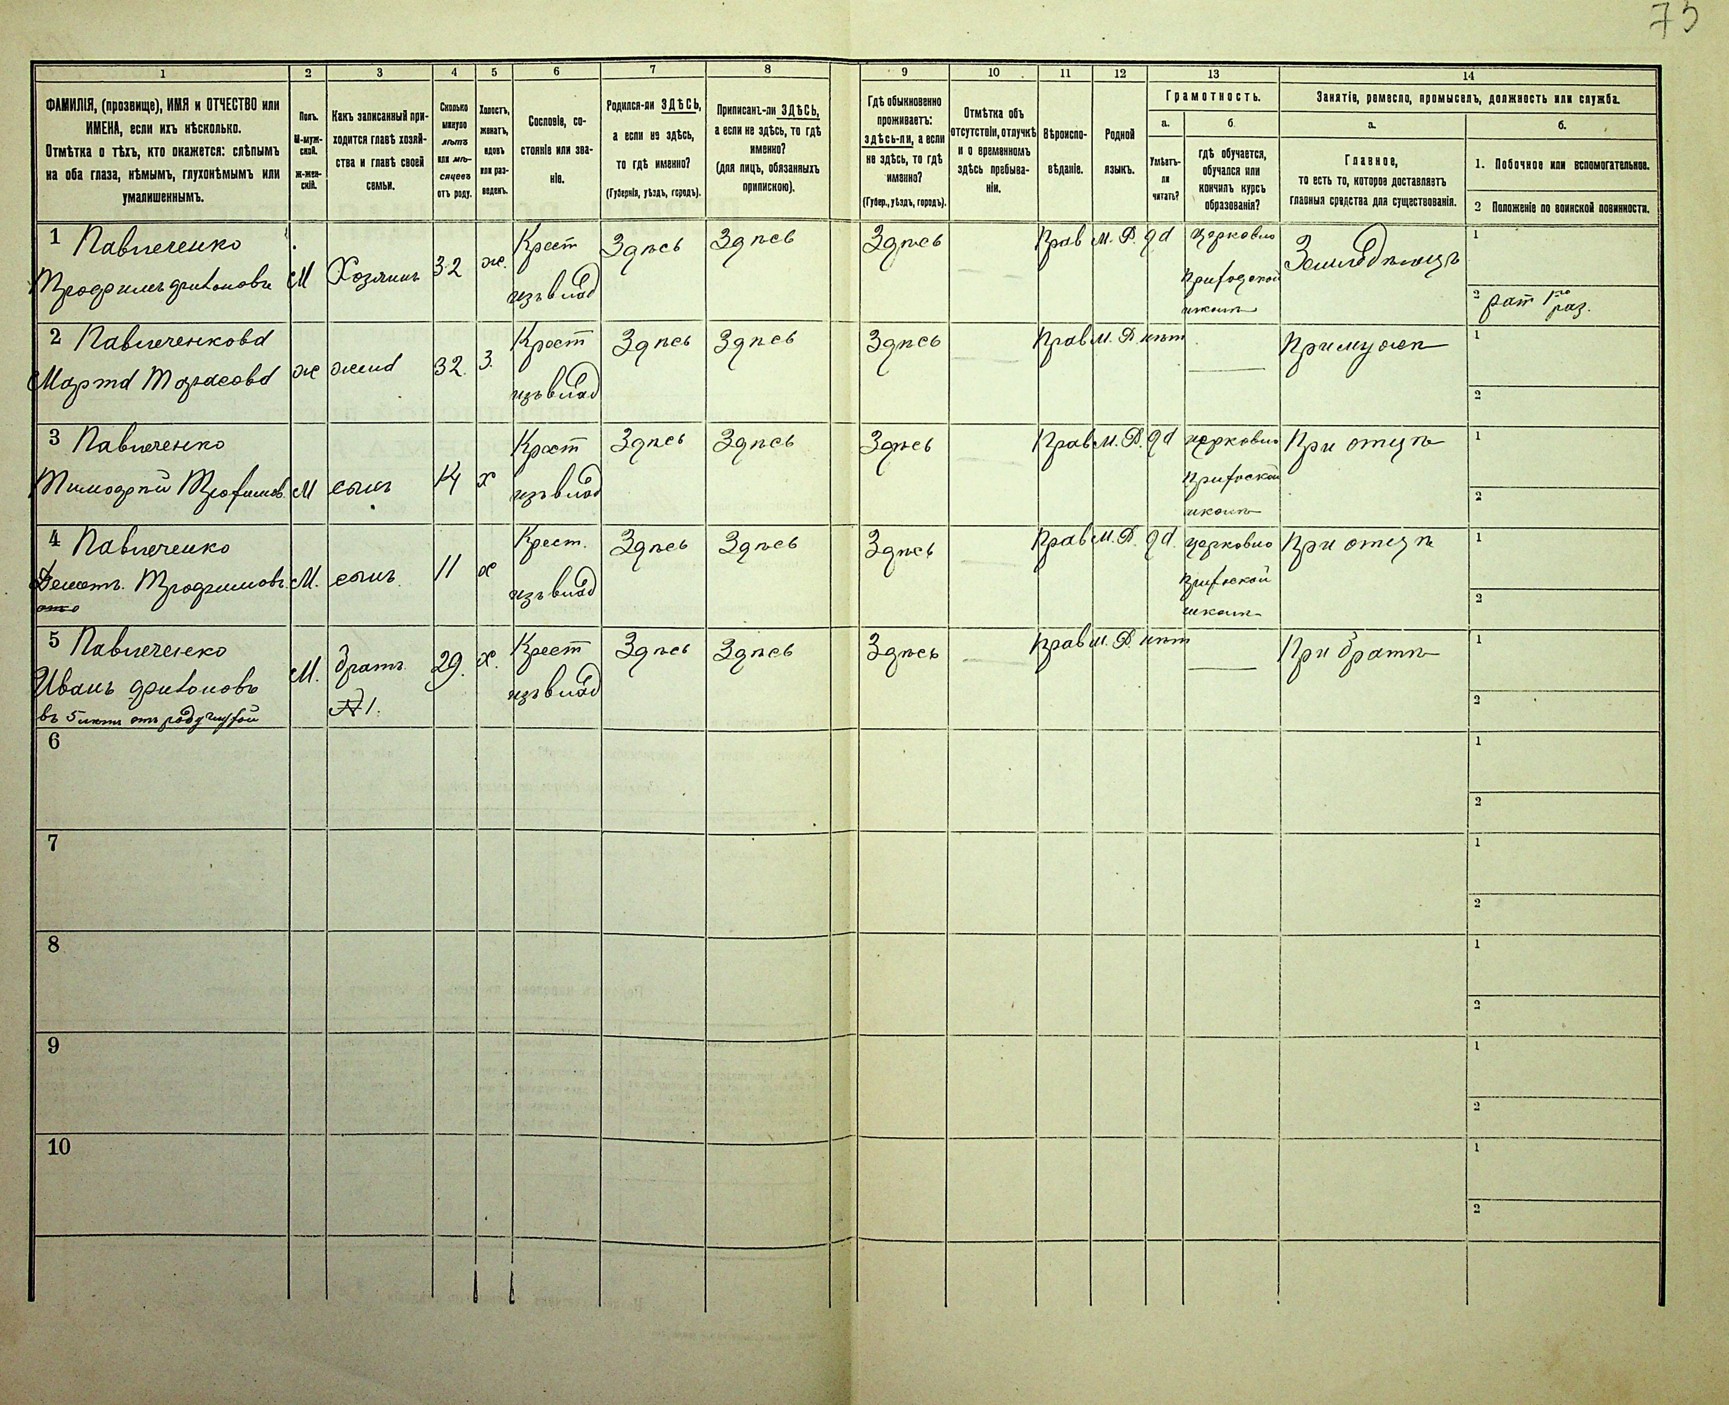 73
1 2 3 4 5 6 7 8 9 10 11 12 13 14
ФАМИЛІЯ, (прозвище), ИМЯ и ОТЧЕСТВО или
ИМЕНА, если ихъ нѣсколько.
Отмѣтка о тѣхъ, кто окажется: слѣпымъ
на оба глаза, нѣмымъ, глухонѣмымъ или
умалишеннымъ.
Полъ.
М-муж-
ской.
Ж-жен-
скій.
Какъ записанный при-
ходится главѣ хозяй-
ства и главѣ своей
семьи.
Сколько
минуло
лѣтъ
или мѣ-
сяцевъ
отъ роду.
Холостъ,
женатъ,
вдовъ
или раз-
веденъ.
Сословіе, со-
стояніе или зва-
ніе.
Родился-ли ЗДѢСЬ,
а если не здѣсь,
то гдѣ именно?
(Губернія, уѣздъ, городъ).
Приписанъ-ли ЗДѢСЬ,
а если не здѣсь, то гдѣ
именно?
(для лицъ, обязанныхъ
припискою).
Гдѣ обыкновенно
проживаетъ:
здѣсь-ли, а если
не здѣсь, то гдѣ
именно?
(Губер., уѣздъ, городъ).
Отмѣтка объ
отсутствіи, отлучкѣ
и о временномъ
здѣсь пребыва-
ніи.
Вѣроиспо-
вѣданіе.
Родной
языкъ.
Грамотность.
а.
Умѣетъ-
ли
читать?
б.
гдѣ обучается,
обучался или
кончилъ курсъ
образованія?
Занятіе, ремесло, промыселъ, должность или служба.
а.
Главное,
то есть то, которое доставляетъ
главныя средства для существованія.
б.
1. Побочное или вспомогательное.
2 Положеніе по воинской повинности.
1 Павличенко
Трофимъ филоновъ
М
Хозяинъ
32
ж.
Крест
изъ влад
Здѣсь
Здѣсь
Здѣсь
Прав
М. Р.
да
церковно
Приходской
школѣ
Земледѣлецъ
1
2 рат 1го раз.
2 Павличенкова
Марта Тарасова
ж
жена
32.
З.
Крест
изъ влад
Здѣсь
Здѣсь
Здѣсь
Прав
М. Р.
нѣт
При мужѣ
1
2
3 Павличенко
Тимофѣй Трофимов.
М
сынъ
14
х
Крест
изъ влад
Здѣсь
Здѣсь
Здѣсь
Прав
М. Р.
да
церковно
Прихоской
школѣ
При отцѣ
1
2
4 Павличенко
Трофимовъ
М.
сынъ
11
х
Крест.
изъ влад
Здѣсь
Здѣсь
Здѣсь
Прав
М. Р.
да
церковно
Прихоской
школѣ
При отцѣ
1
2
5 Павличенко
Иванъ филоновъ
въ 5 лѣтъ отъ роду глухой
М.
братъ
№ 1.
29.
х.
Крест
изъ влад
Здѣсь
Здѣсь
Здѣсь
Прав
М. Р.
нѣт
При братѣ
1
2
6
1
2
7
1
2
8
1
2
9
1
2
10
1
2